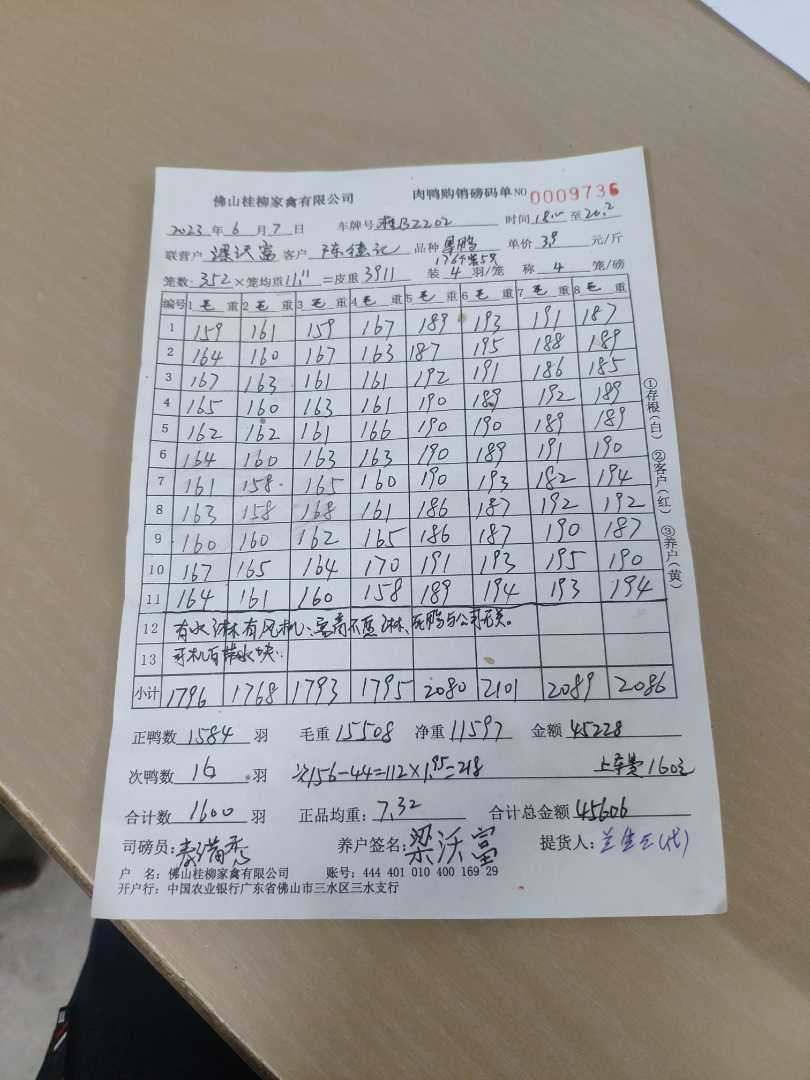 佛山桂柳家禽有限公司 肉鸭购销磅码单 NO 0009736
2023 年 6 月 7 日 车牌号 桂BZ202 时间 18 至 20.2
联营户 梁沃富 客户 陈德记 品种 粤鹏 单价 3.9 元/斤
笼数 352 ×笼均重 11.11 =皮重 3911 装 4 羽/笼 称 4 笼/磅
编号 1 毛 重 2 毛 重 3 毛 重 4 毛 重 5 毛 重 6 毛 重 7 毛 重 8 毛 重
1 159 161 159 167 189 193 191 187
2 164 160 167 163 187 195 188 189
3 167 163 161 161 192 191 186 185
4 165 160 163 161 190 189 192 189
5 162 162 161 166 190 190 189 189
6 164 160 163 163 190 189 191 190
7 161 158 165 160 190 193 182 194
8 163 158 168 161 186 187 192 192
9 160 160 162 165 186 187 190 187
10 167 165 164 170 191 193 195 190
11 164 161 160 158 189 194 193 194
12 有水淋有风机、客商不愿淋、死鸭与公司无关。
13 司机百带水块.
小计 1796 1768 1793 1795 2080 2101 2089 2086
正鸭数 1584 羽 毛重 15508 净重 11597 金额 45228
次鸭数 16 羽 次156-44=112×1.95=218 上车费160元
合计数 1600 羽 正品均重: 7.32 合计总金额 45606
司磅员: 养户签名: 梁沃富 提货人:
户 名: 佛山桂柳家禽有限公司 账号: 444 401 010 400 169 29
开户行: 中国农业银行广东省佛山市三水区三水支行
①存根(白) ②客户(红) ③养户(黄)